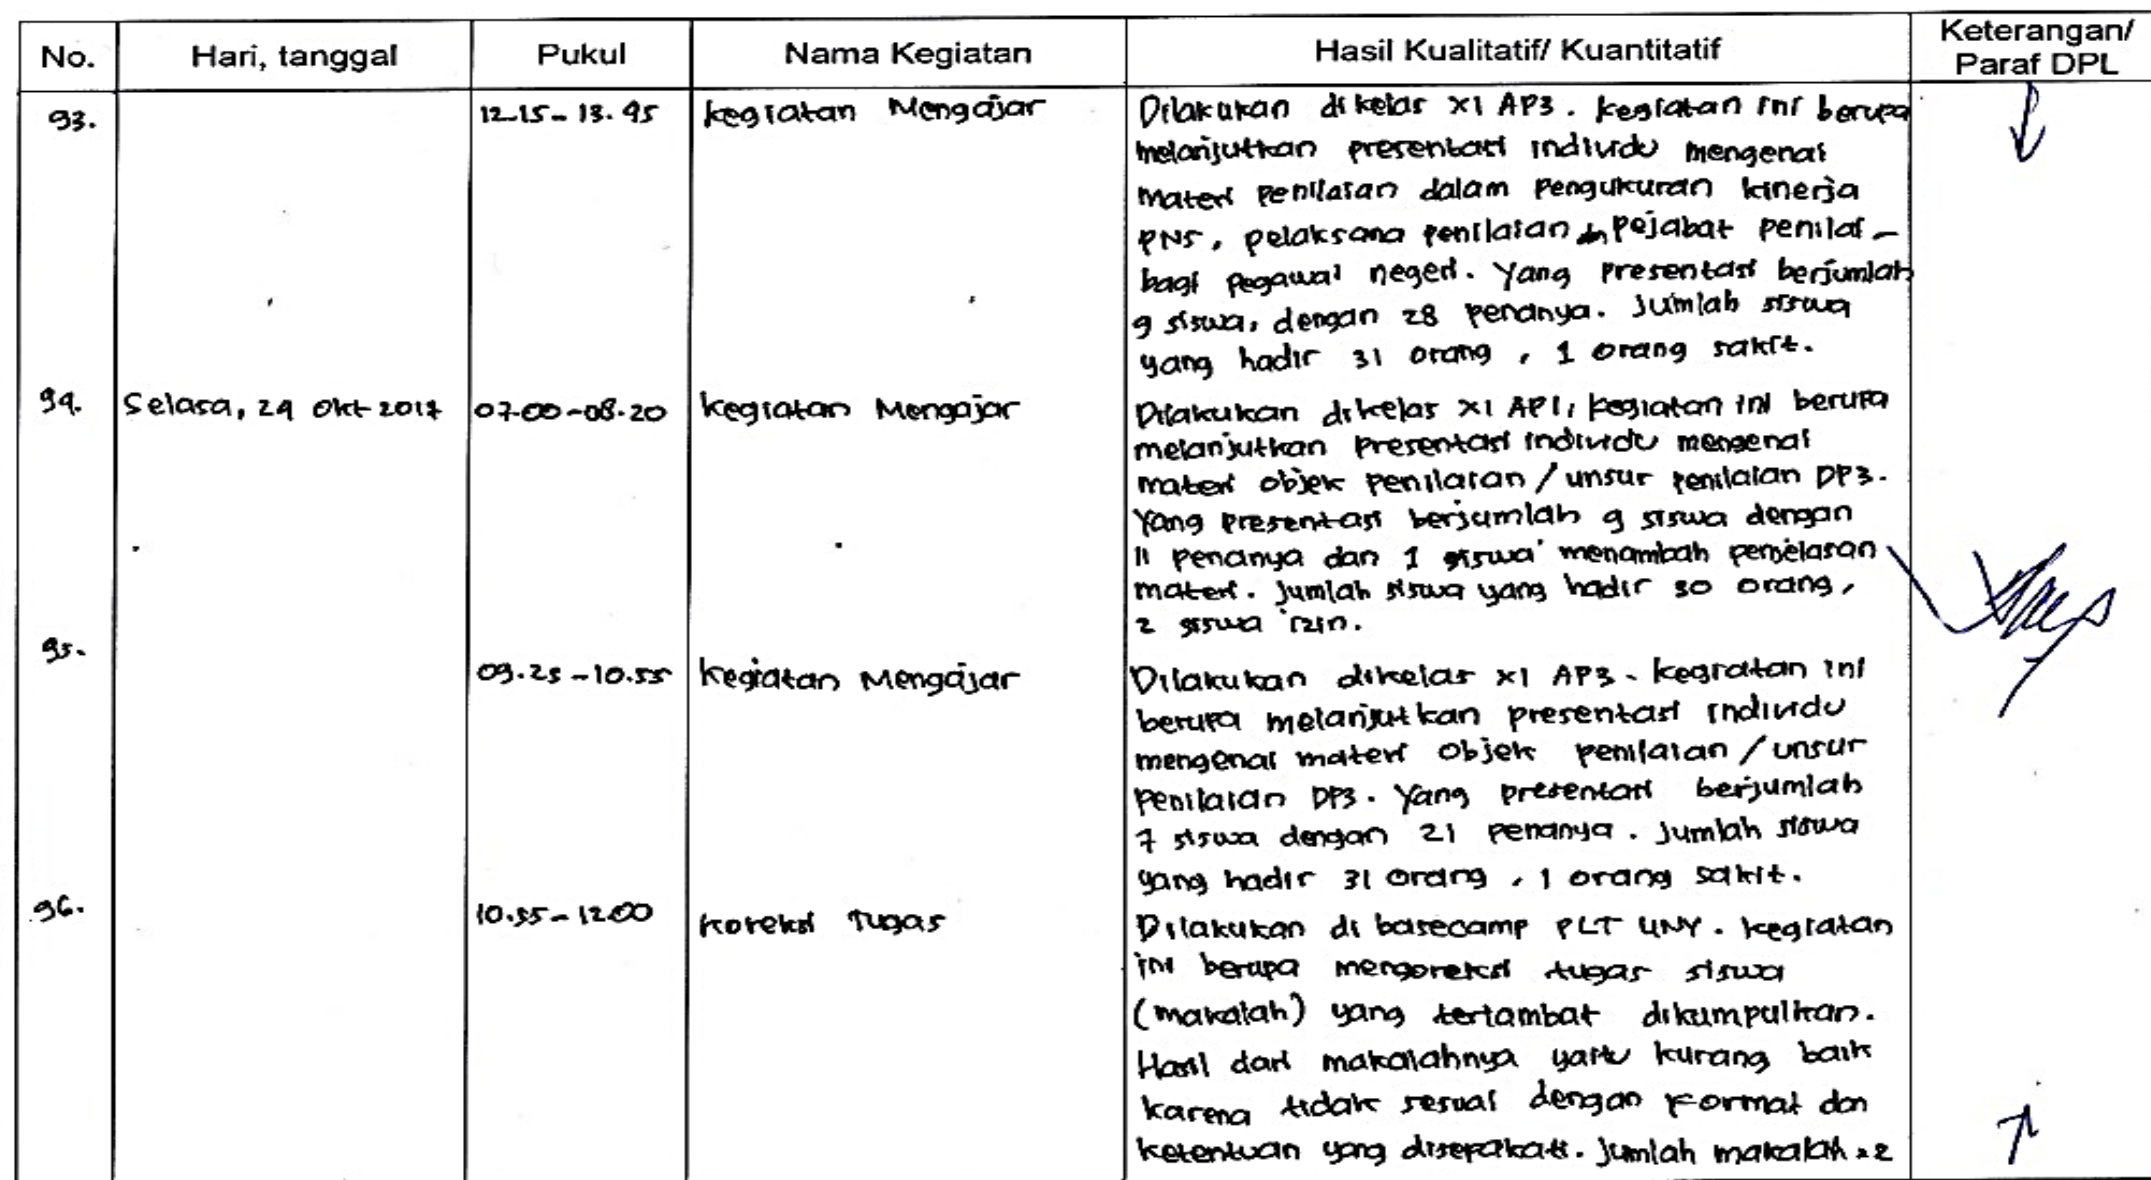 No. Hari, tanggal Pukul Nama Kegiatan Hasil Kualitatif/ Kuantitatif Keterangan/ Paraf DPL
93. 12.15 - 13.45 Kegiatan Mengajar Dilakukan di kelas XI AP3. Kegiatan ini berupa
melanjutkan presentasi individu mengenai
materi penilaian dalam pengukuran kinerja
PNS, pelaksana penilaian dn pejabat penilai -
bagi pegawai negeri. Yang presentasi berjumlah
9 siswa, dengan 28 penanya. Jumlah siswa
yang hadir 31 orang, 1 orang sakit.
94. Selasa, 24 Okt 2017 07.00-08.20 Kegiatan Mengajar Dilakukan dikelas XI AP1, kegiatan ini berupa
melanjutkan presentasi individu mengenai
materi objek penilaian / unsur penilaian DP3.
Yang presentasi berjumlah 9 siswa dengan
11 penanya dan 1 siswa menambah penjelasan
materi. Jumlah siswa yang hadir 30 orang,
2 siswa izin.
95. 09.25 - 10.55 Kegiatan Mengajar Dilakukan dikelas XI AP3. Kegiatan ini
berupa melanjutkan presentasi individu
mengenai materi objek penilaian / unsur
penilaian DP3. Yang presentasi berjumlah
7 siswa dengan 21 penanya. Jumlah siswa
yang hadir 31 orang, 1 orang sakit.
96. 10.55 - 12.00 Koreksi Tugas Dilakukan di basecamp PLT UNY. Kegiatan
ini berupa mengoreksi tugas siswa
(makalah) yang tertambat dikumpulkan.
Hasil dari makalahnya yaitu kurang baik
karena tidak sesuai dengan format dan
ketentuan yang disepakati. Jumlah makalah = 2